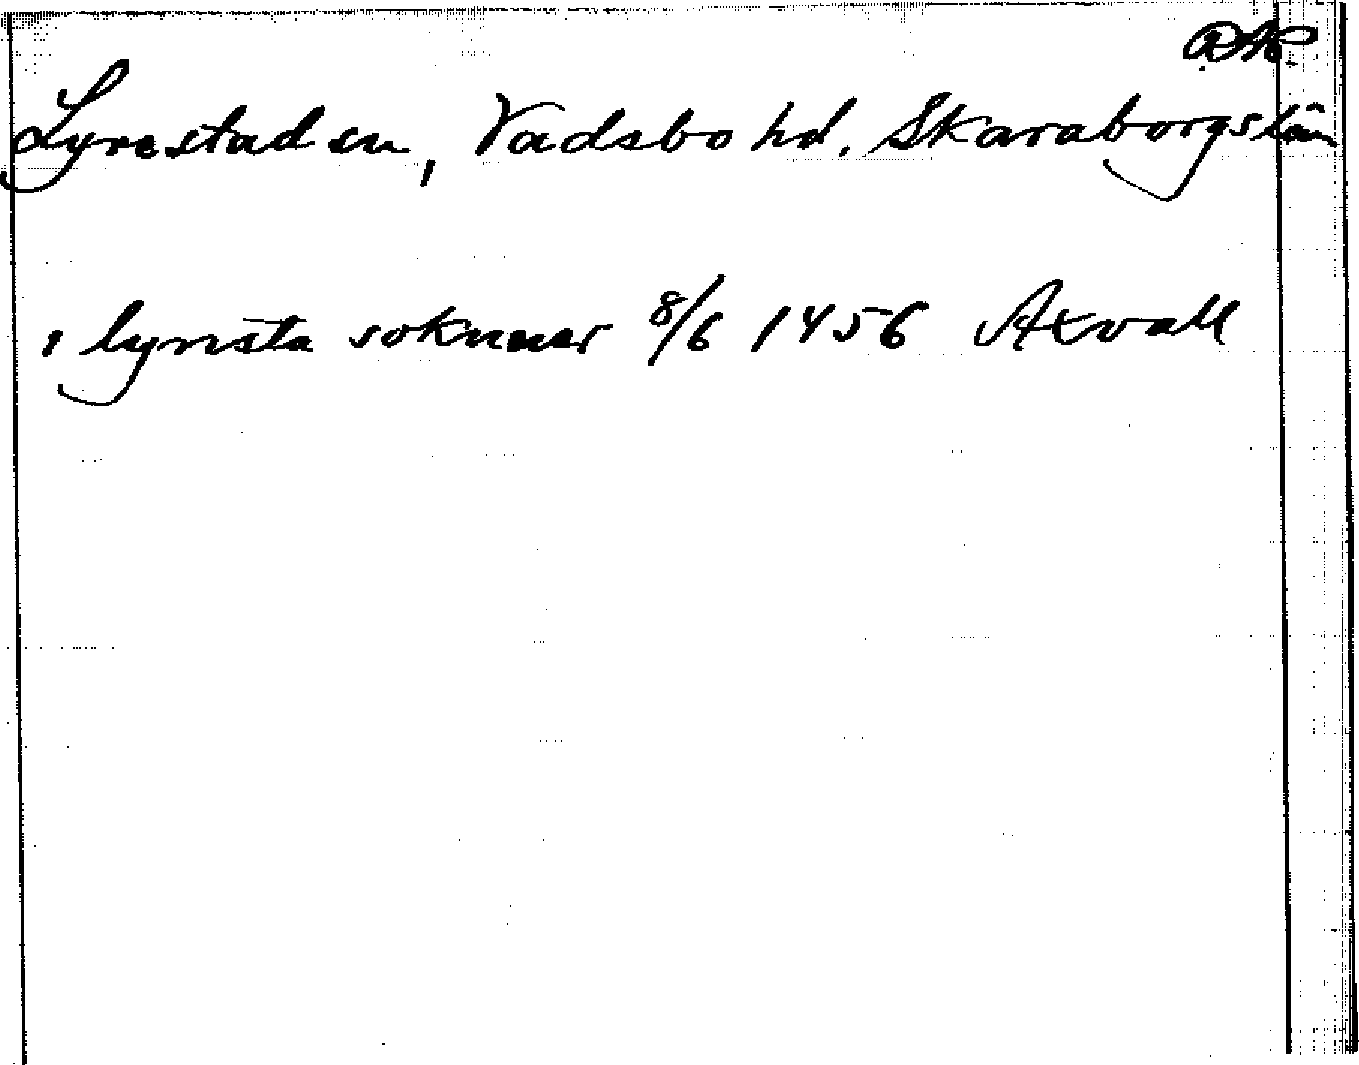 Lyrestad sn, Vadsbo hd. Skaraborgs län
i lyrista soknner 8/6 1456 Axvall